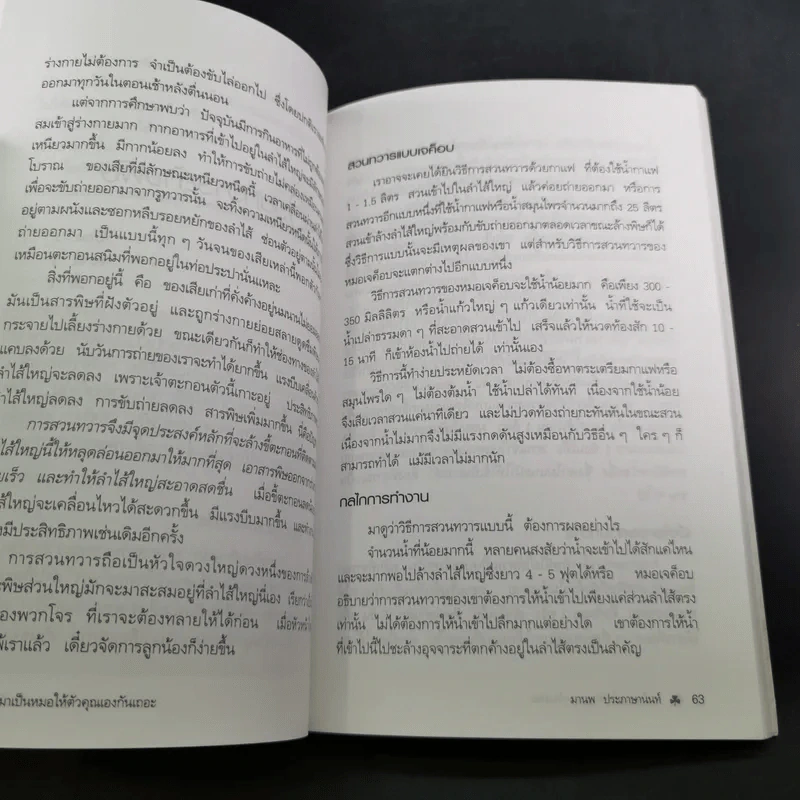 ร่างกายไม่ต้องการ จำเป็นต้องขับไล่ออกไป ซึ่งโดยปกติ
ออกมาทุกวันในตอนเช้าหลังตื่นนอน
แต่จากการศึกษาพบว่า ปัจจุบันมีการกินอาหารที่ไม่ถูก
สมเข้าสู่ร่างกายมาก กากอาหารที่เข้าไปอยู่ในลำไส้ใหญ่จะมี
เหนียวมากขึ้น มีกากน้อยลง ทำให้การขับถ่ายไม่คล่องเหมือน
โบราณ ของเสียที่มีลักษณะเหนียวหนืดนี้ เวลาเคลื่อนผ่าน
เพื่อจะขับถ่ายออกมาจากรูทวารนั้น จะทิ้งความเหนียวหนืด
อยู่ตามผนังและซอกหลืบรอยหยักของลำไส้ ซ่อนตัวอยู่ตาม
ถ่ายออกมา เป็นแบบนี้ทุก ๆ วันจนของเสียเหล่านี้พอกตัว
เหมือนตะกอนสนิมที่พอกอยู่ในท่อประปานั่นแหละ
สิ่งที่พอกอยู่นี้ คือ ของเสียเก่าที่คั่งค้างอยู่นมนานไม่ยอม
มันเป็นสารพิษที่ฝังตัวอยู่ และถูกร่างกายย่อยสลายดูดซึม
กระจายไปเลี้ยงร่างกายด้วย ขณะเดียวกันก็ทำให้ช่องทางของ
แคบลงด้วย นับวันการถ่ายของเราจะทำได้ยากขึ้น แรงบีบเคลื่อน
ลำไส้ใหญ่จะลดลง เพราะเจ้าตะกอนตัวนี้เกาะอยู่ ประสิทธิภาพ
ลำไส้ใหญ่ลดลง การขับถ่ายลดลง สารพิษเพิ่มมากขึ้น นี่คือ
การสวนทวารจึงมีจุดประสงค์หลักที่จะล้างขี้ตะกอนที่ติด
ไส้ใหญ่นี้ให้หลุดล่อนออกมาให้มากที่สุด เอาสารพิษออกจาก
เร็ว และทำให้ลำไส้ใหญ่สะอาดสดชื่น เมื่อขี้ตะกอนลด
ไส้ใหญ่จะเคลื่อนไหวได้สะดวกขึ้น มีแรงบีบมากขึ้น และ
มีประสิทธิภาพเช่นเดิมอีกครั้ง
การสวนทวารถือเป็นหัวใจดวงใหญ่ดวงหนึ่งของการ
พิษส่วนใหญ่มักจะมาสะสมอยู่ที่ลำไส้ใหญ่นี่เอง เรียกว่า
องพวกโจร ที่เราจะต้องทลายให้ได้ก่อน เมื่อหัวหน้า
พ้เราแล้ว เดี๋ยวจัดการลูกน้องก็ง่ายขึ้น
มาเป็นหมอให้ตัวคุณเองกันเถอะ
สวนทวารแบบเจค็อบ
เราอาจจะเคยได้ยินวิธีการสวนทวารด้วยกาแฟ ที่ต้องใช้น้ำกาแฟ
1 - 1.5 ลิตร สวนเข้าไปในลำไส้ใหญ่ แล้วค่อยถ่ายออกมา หรือการ
สวนทวารอีกแบบหนึ่งที่ใช้น้ำกาแฟหรือน้ำสมุนไพรจำนวนมากถึง 25 ลิตร
สวนเข้าล้างลำไส้ใหญ่พร้อมกับขับถ่ายออกมาตลอดเวลาขณะล้างพิษก็ได้
ซึ่งวิธีการแบบนั้นจะมีเหตุผลของเขา แต่สำหรับวิธีการสวนทวารของ
หมอเจค็อบจะแตกต่างไปอีกแบบหนึ่ง
วิธีการสวนทวารของหมอเจค็อบจะใช้น้ำน้อยมาก คือเพียง 300 -
350 มิลลิลิตร หรือน้ำแก้วใหญ่ ๆ แก้วเดียวเท่านั้น น้ำที่ใช้จะเป็น
น้ำเปล่าธรรมดา ๆ ที่สะอาดสวนเข้าไป เสร็จแล้วให้นวดท้องสัก 10 -
15 นาที ก็เข้าห้องน้ำไปถ่ายได้ เท่านั้นเอง
วิธีการนี้ทำง่ายประหยัดเวลา ไม่ต้องซื้อหาตระเตรียมกาแฟหรือ
สมุนไพรใด ๆ ไม่ต้องต้มน้ำ ใช้น้ำเปล่าได้ทันที เนื่องจากใช้น้ำน้อย
จึงเสียเวลาสวนแค่นาทีเดียว และไม่ปวดท้องถ่ายกะทันหันในขณะสวน
เนื่องจากน้ำไม่มากจึงไม่มีแรงกดดันสูงเหมือนกับวิธีอื่น ๆ ใคร ๆ ก็
สามารถทำได้ แม้มีเวลาไม่มากนัก
กลไกการทำงาน
มาดูว่าวิธีการสวนทวารแบบนี้ ต้องการผลอย่างไร
จำนวนน้ำที่น้อยมากนี้ หลายคนสงสัยว่าน้ำจะเข้าไปได้สักแค่ไหน
และจะมากพอไปล้างลำไส้ใหญ่ซึ่งยาว 4 - 5 ฟุตได้หรือ หมอเจค็อบ
อธิบายว่าการสวนทวารของเขาต้องการให้น้ำเข้าไปเพียงแค่ส่วนลำไส้ตรง
เท่านั้น ไม่ได้ต้องการให้น้ำเข้าไปลึกมากแต่อย่างใด เขาต้องการให้น้ำ
ที่เข้าไปนี้ไปชะล้างอุจจาระที่ตกค้างอยู่ในลำไส้ตรงเป็นสำคัญ
มานพ ประภาษานนท์ 63